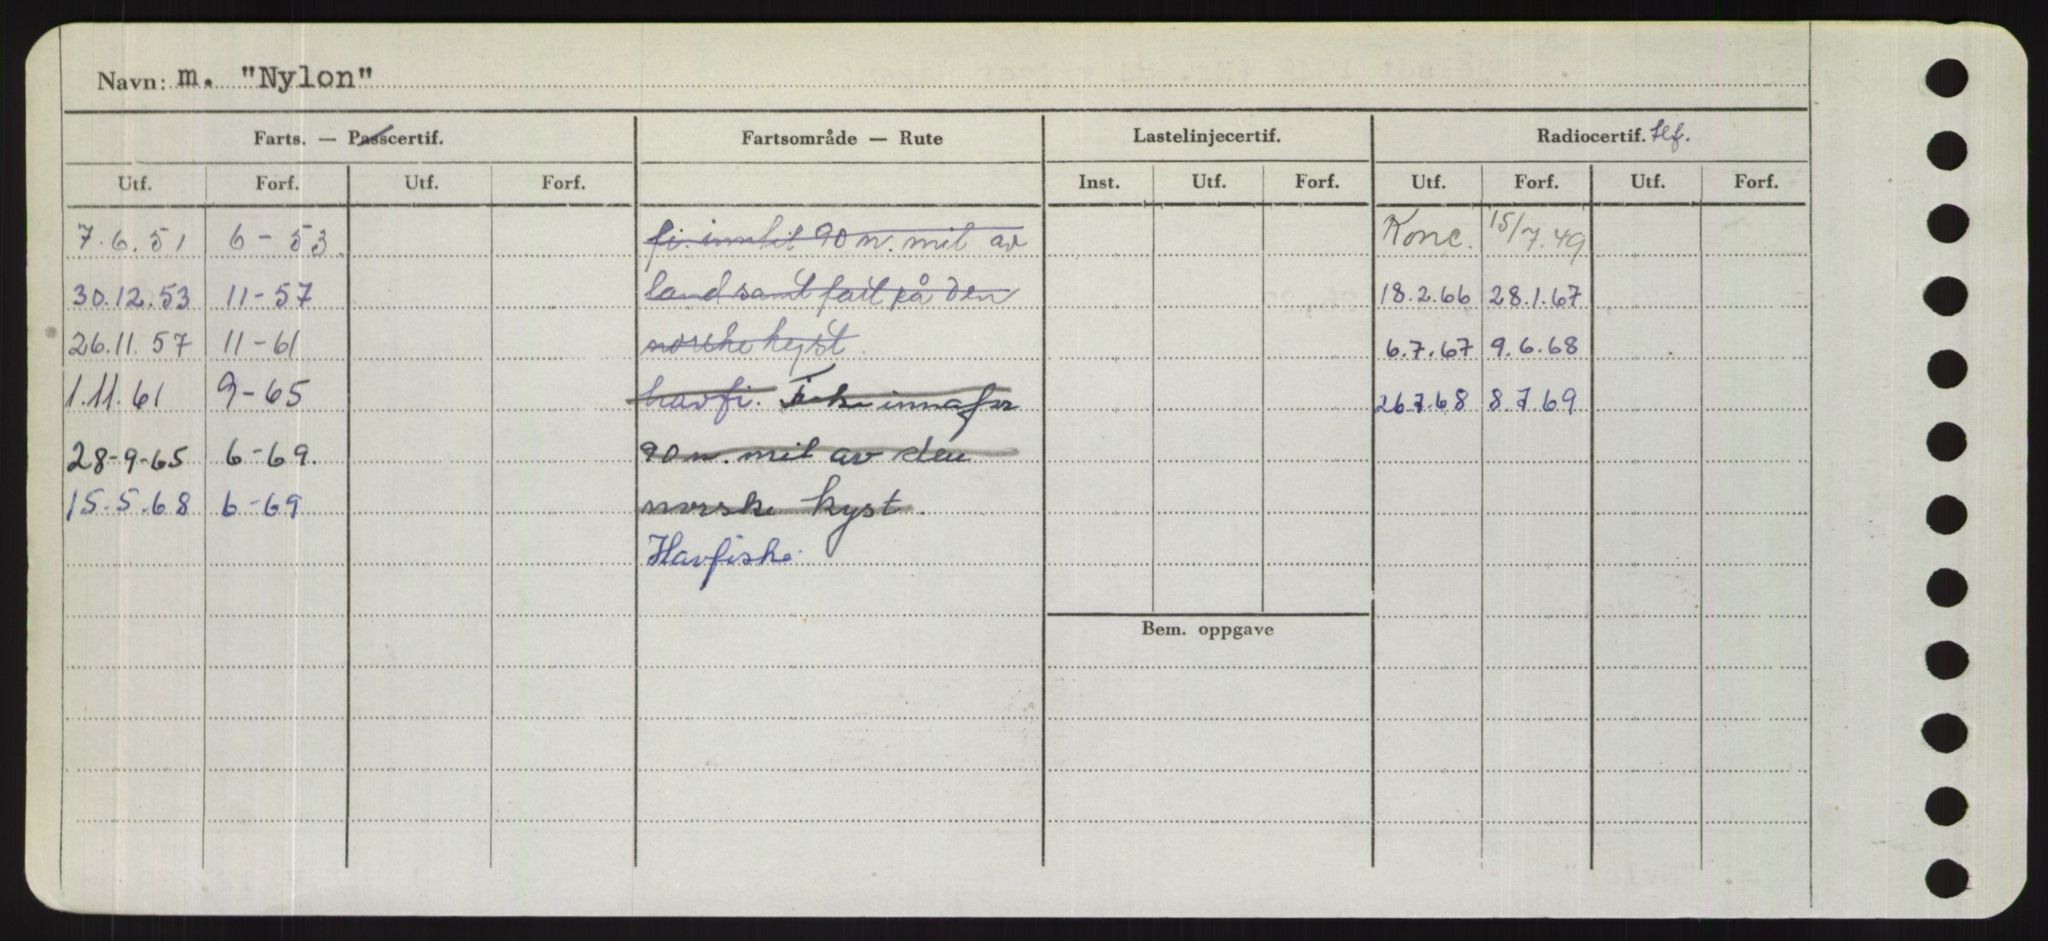 Navn: m. "Nylon"
Farts. — Passcertif. Fartsområde — Rute Lastelinjecertif. Radiocertif. tlf.
Utf. Forf. Utf. Forf. Inst. Utf. Forf. Utf. Forf. Utf. Forf.
7.6.51 6-53 fi. inntil 90 n. mil av Konc. 15/7.49
30.12.53 11-57 land samt fart på den 18.2.66 28.1.67
26.11.57 11-61 norske kyst. 6.7.67 9.6.68
1.11.61 9-65 havfi. Fiske innafor 26.7.68 8.7.69
28-9-65 6-69. 90 n. mil av den
15.5.68 6-69 norske kyst.
Havfiske.
Bem. oppgave